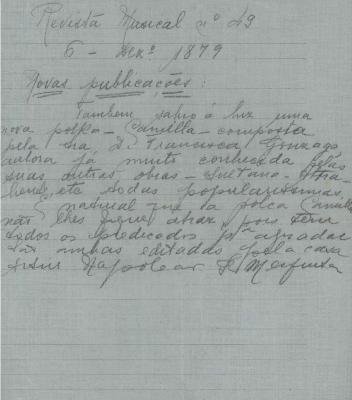 Revista Musical nº 49
6 - Dezº 1879
Novas publicações:
Tambem sahio á luz uma
nova polka - Camilla - composta
pela Sra D. Francisca Gonzaga
autora já muito conhecida pelas
suas outras obras - Sultana -
etc todas popularissimas.
E natural que a polca Camilla
não lhes fique atraz, pois tem
todos os predicados pª agradar
São ambas editadas pela casa
Arthur Napoleão & Miguez